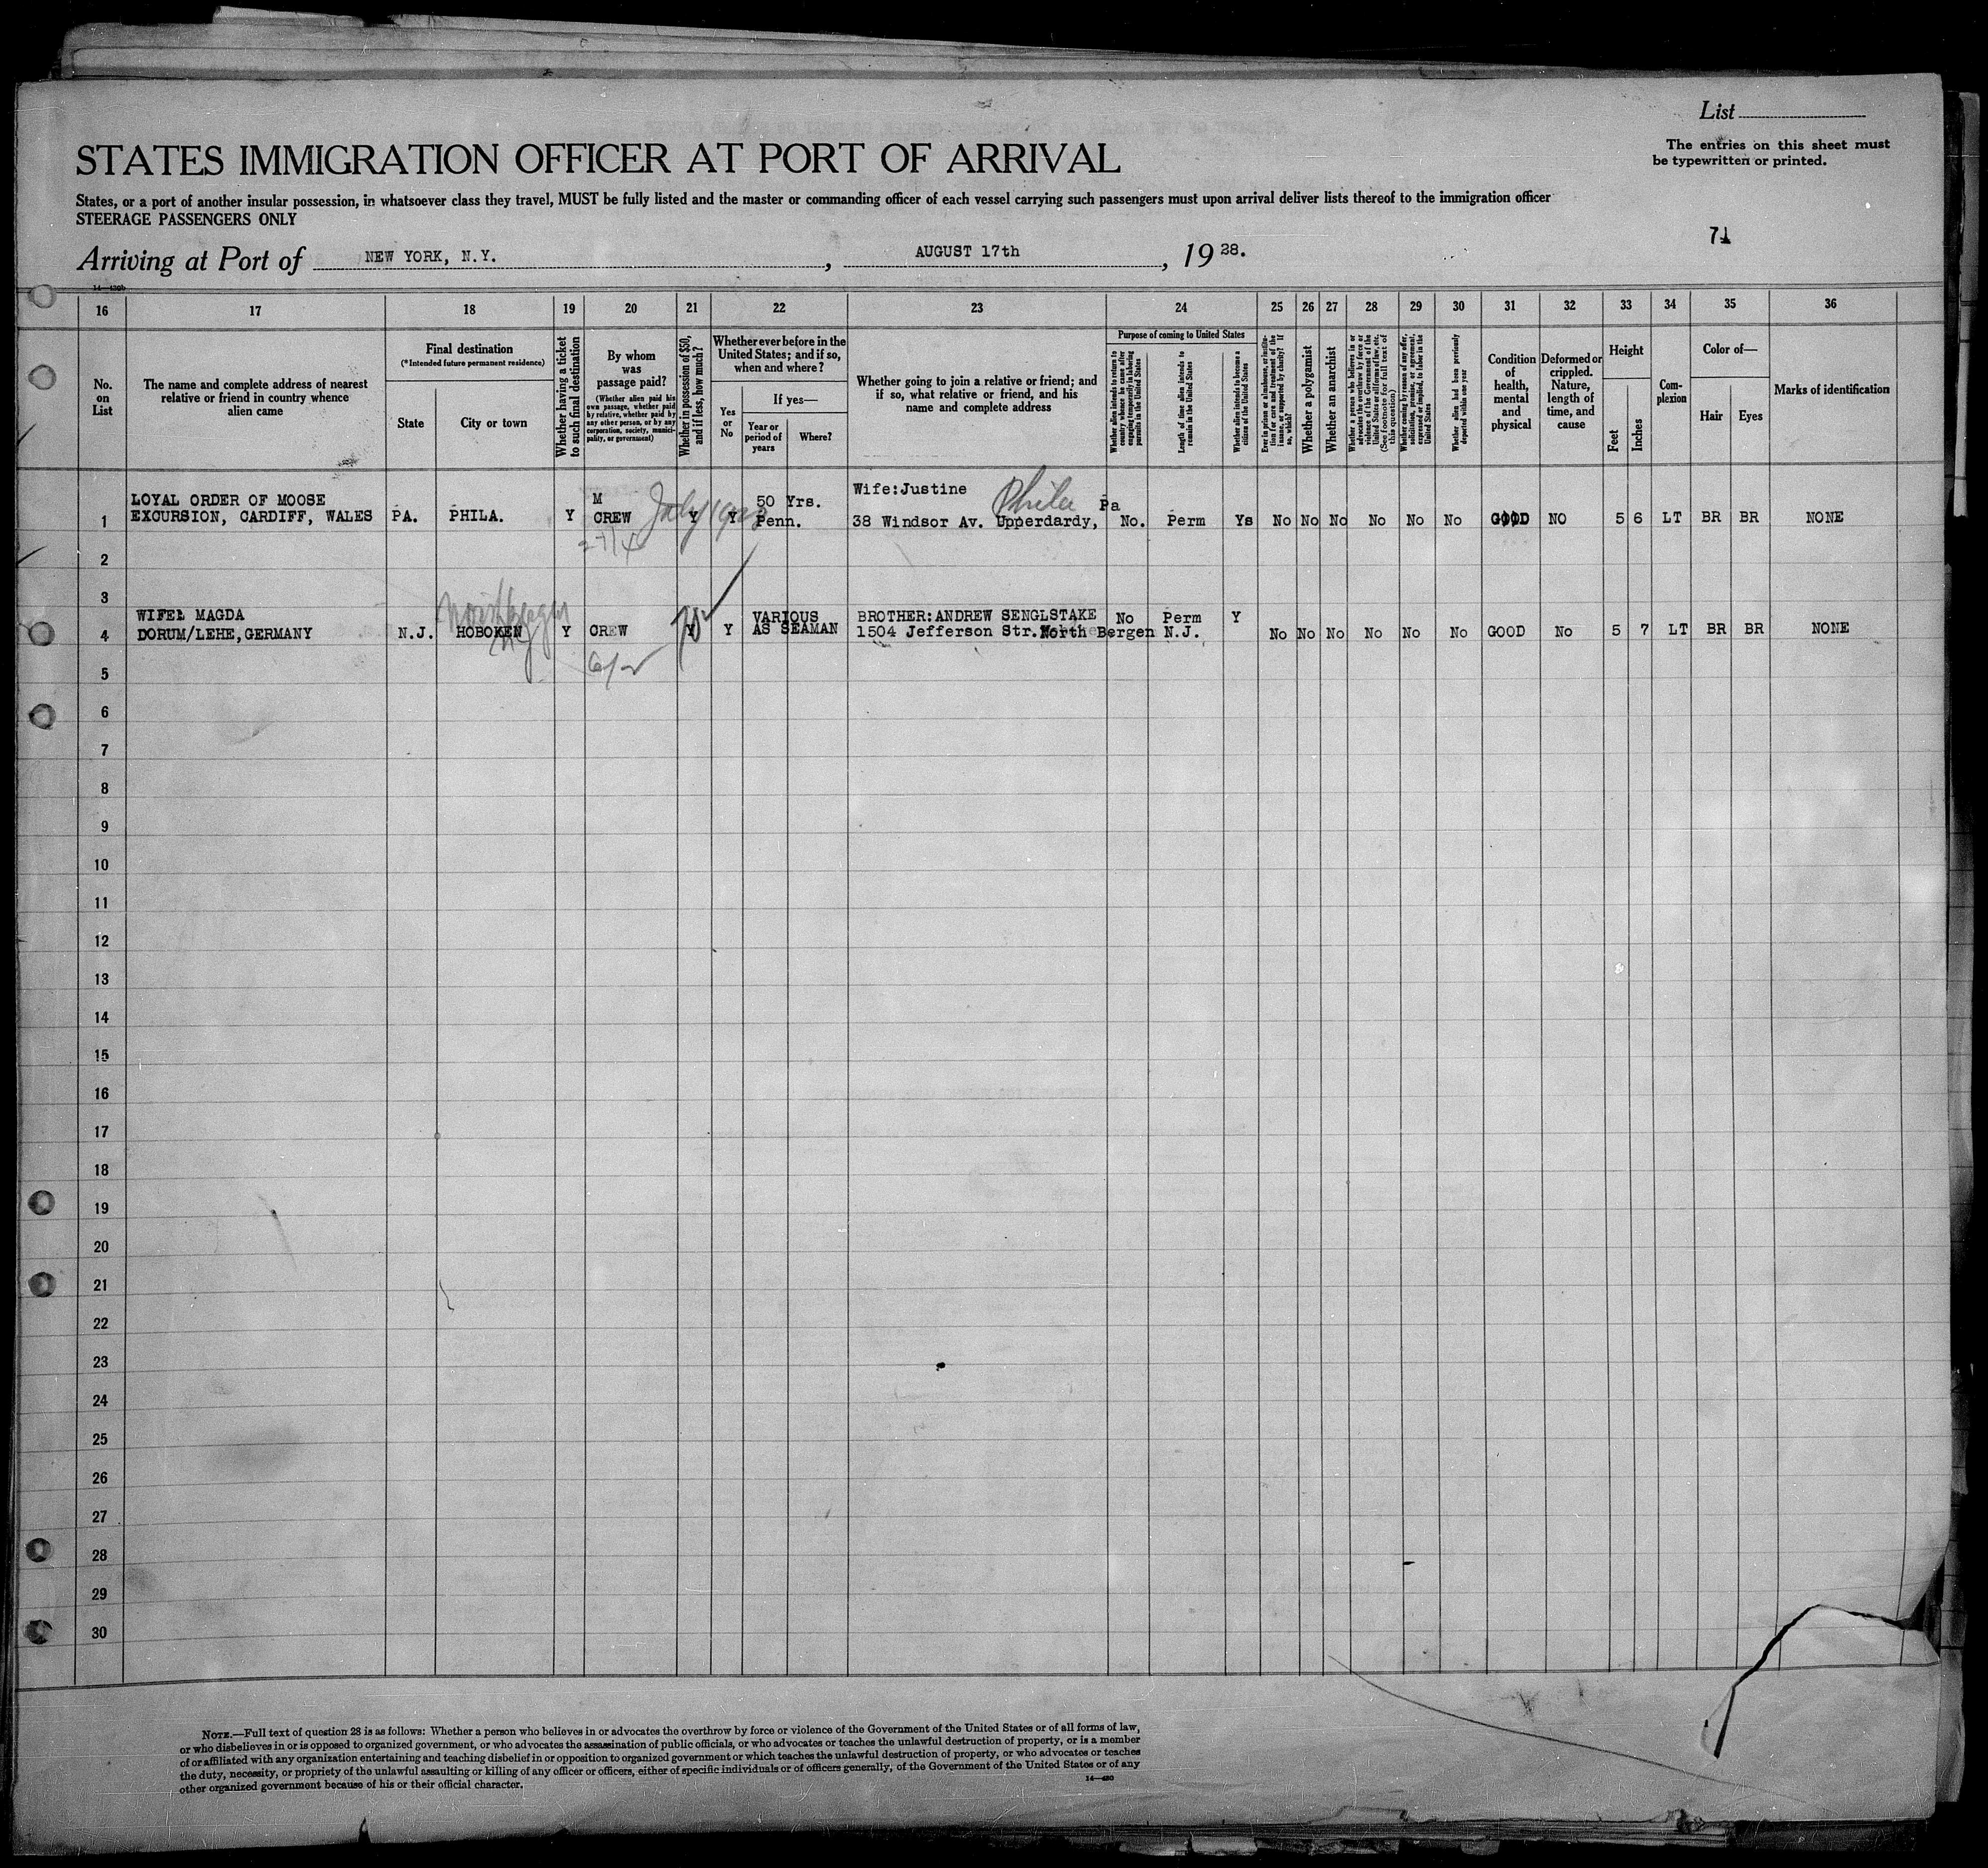 List
The entries on this sheet must
be typewritten or printed.
STATES IMMIGRATION OFFICER AT PORT OF ARRIVAL
States, or a port of another insular possession, in whatsoever class they travel, MUST be fully listed and the master or commanding officer of each vessel carrying such passengers must upon arrival deliver lists thereof to the immigration officer
STEERAGE PASSENGERS ONLY
71
Arriving at Port of NEW YORK, N.Y. , AUGUST 17th , 19 28.
16 17 18 19 20 21 22 23 24 25 26 27 28 29 30 31 32 33 34 35 36
No. on List
The name and complete address of nearest
relative or friend in country whence
alien came
Final destination
(*Intended future permanent residence)
State
City or town
Whether having a ticket
to such final destination
By whom
was
passage paid?
(Whether alien paid his
own passage, whether paid
by relative, whether paid by
any other person, or by any
corporation, society, munici-
pality, or government)
Whether in possession of $50,
and if less, how much?
Whether ever before in the
United States; and if so,
when and where?
Yes
or
No
If yes—
Year or
period of
years
Where?
Whether going to join a relative or friend; and
if so, what relative or friend, and his
name and complete address
Purpose of coming to United States
Whether alien intends to return to
country whence he came after
engaging temporarily in laboring
pursuits in the United States
Length of time alien intends to
remain in the United States
Whether alien intends to become a
citizen of the United States
Ever in prison or almshouse, or institu-
tion for care and treatment of the
insane, or supported by charity? If
so, which?
Whether a polygamist
Whether an anarchist
Whether a person who believes in or
advocates the overthrow by force or
violence of the Government of the
United States or all forms of law, etc.
(See footnote for full text of
this question)
Whether coming by reason of any offer,
solicitation, promise, or agreement,
expressed or implied, to labor in the
United States
Whether alien had been previously
deported within one year
Condition
of
health,
mental
and
physical
Deformed or
crippled.
Nature,
length of
time, and
cause
Height
Feet
Inches
Com-
plexion
Color of—
Hair
Eyes
Marks of identification
LOYAL ORDER OF MOOSE M 50 Yrs. Wife:Justine Phila Pa
1 EXCURSION, CARDIFF, WALES PA. PHILA. Y CREW July Y Y Penn. 38 Windsor Av. Upperdardy, No. Perm Ys No No No No No No GOOD NO 5 6 LT BR BR NONE
2
3
WIFE: MAGDA VARIOUS BROTHER:ANDREW SENGLSTAKE No Perm Y
4 DORUM/LEHE,GERMANY N.J. HOBOKEN Y CREW Y Y AS SEAMAN 1504 Jefferson Str. North Bergen N.J. No No No No No No GOOD No 5 7 LT BR BR NONE
5
6
7
8
9
10
11
12
13
14
15
16
17
18
19
20
21
22
23
24
25
26
27
28
29
30
NOTE.—Full text of question 28 is as follows: Whether a person who believes in or advocates the overthrow by force or violence of the Government of the United States or of all forms of law,
or who disbelieves in or is opposed to organized government, or who advocates the assassination of public officials, or who advocates or teaches the unlawful destruction of property, or is a member
of or affiliated with any organization entertaining and teaching disbelief in or opposition to organized government or which teaches the unlawful destruction of property, or who advocates or teaches
the duty, necessity, or propriety of the unlawful assaulting or killing of any officer or officers, either of specific individuals or of officers generally, of the Government of the United States or of any
other organized government because of his or their official character.
14—430